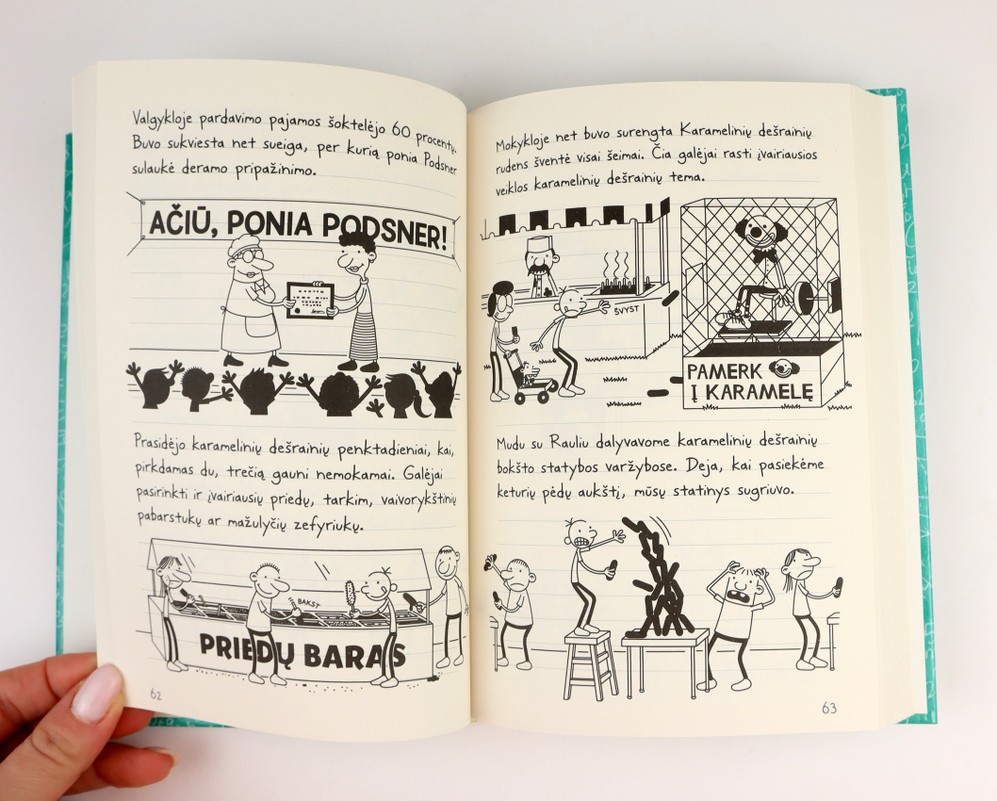 Valgykloje pardavimo pajamos šoktelėjo 60 procentų.
Buvo sukviesta net sueiga, per kurią ponia Podsner
sulaukė deramo pripažinimo.
AČIŪ, PONIA PODSNER!
Prasidėjo karamelinių dešrainių penktadieniai, kai,
pirkdamas du, trečią gauni nemokamai. Galėjai
pasirinkti ir įvairiausių priedų, tarkim, vaivorykštinių
pabarstukų ar mažulyčių zefyriukų.
BAKST
PRIEDŲ BARAS
62
Mokykloje net buvo surengta Karamelinių dešrainių
rudens šventė visai šeimai. Čia galėjai rasti įvairiausios
veiklos karamelinių dešrainių tema.
ŠVYST
PAMERK
Į KARAMELĘ
Mudu su Rauliu dalyvavome karamelinių dešrainių
bokšto statybos varžybose. Deja, kai pasiekėme
keturių pėdų aukštį, mūsų statinys sugriuvo.
63